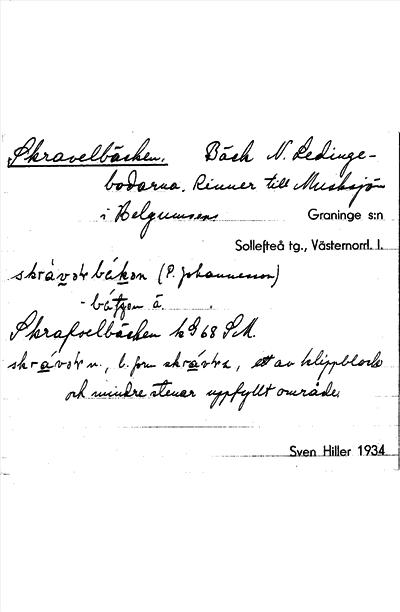 Skravelbäcken. Bäck N. Ledinge-
bodarna. Rinner till Musksjön
i Helgumsens
Graninge s:n
Sollefteå tg., Västernorrl. l.
skrávor bákon (P. Johannesson)
- bátjen ä.
Skrafvelbäcken k G 68 S.M.
skrávor n., b. form skrávra, ett av klippblock
och mindre stenar uppfyllt område.
Sven Hiller 1934